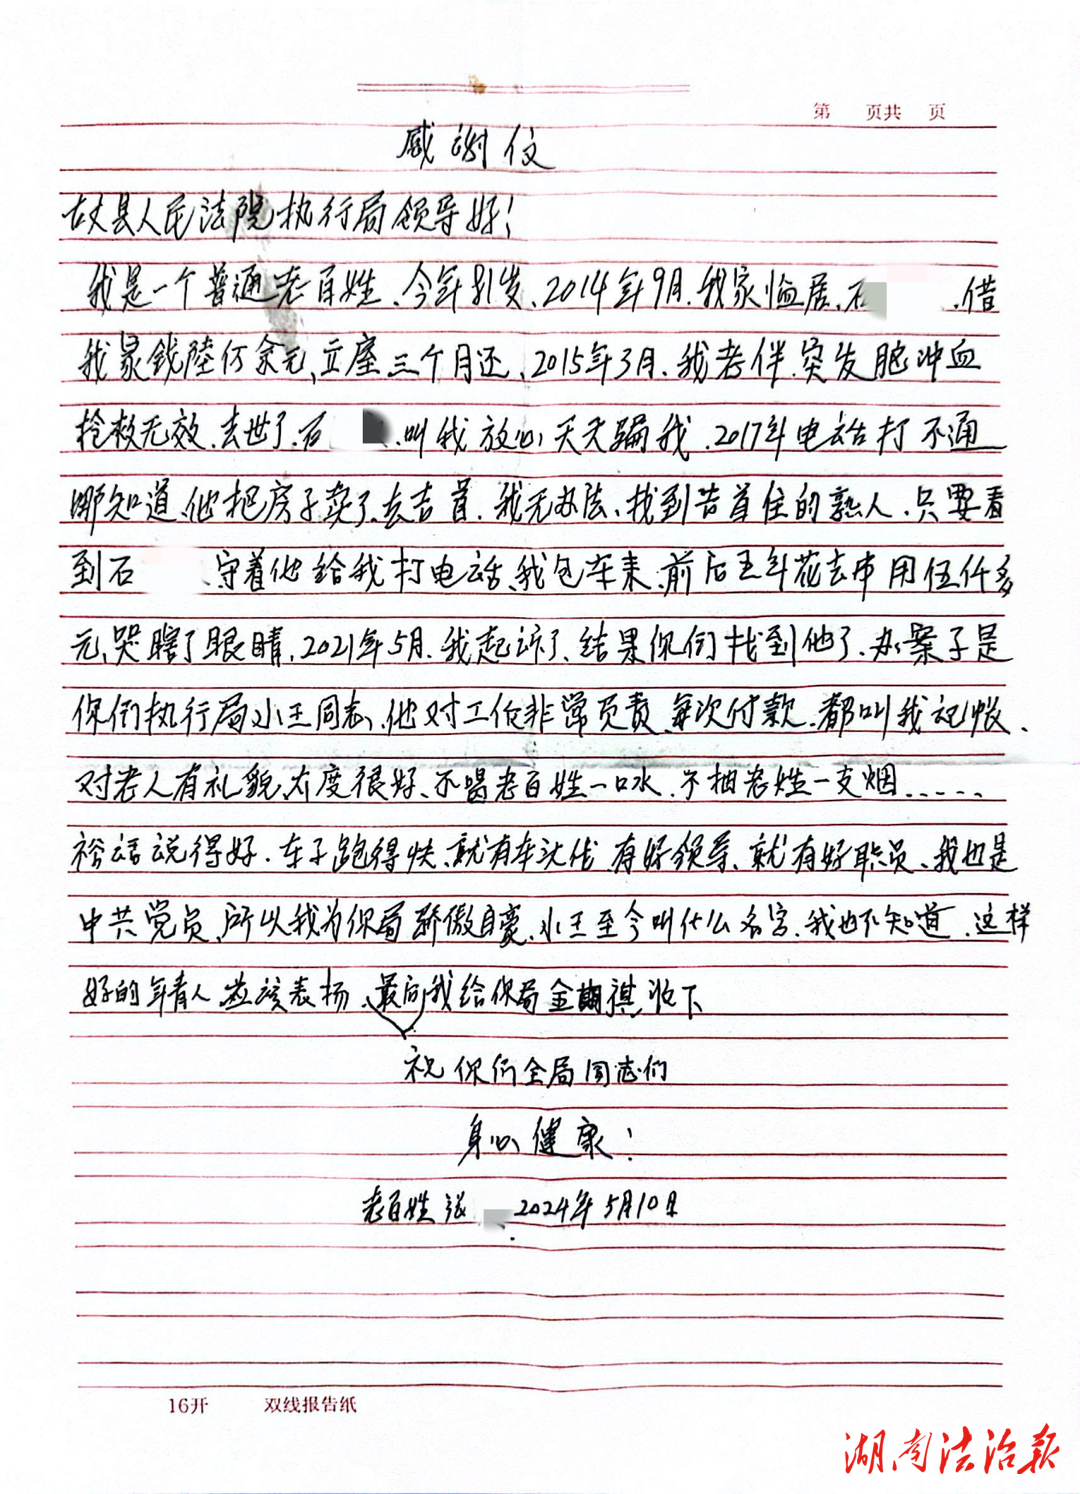 第 页共 页
感谢信
古丈县人民法院执行局领导好！
我是一个普通老百姓、今年81岁、2014年9月、我家临居、石 、借
我家钱陆仟余元、立座三个月还、2015年3月、我老伴、突发脑冲血
抢救无效、去世了、石 、叫我放心、天天骗我、2017年电话打不通
哪知道、他把房子卖了、去吉首、我无办法、找到吉首住的熟人、只要看
到石 、守着他给我打电话、我包车来、前后五年花去车用伍仟多
元、哭瞎了眼睛、2021年5月、我起诉了、结果你们找到他了、办案子是
你们执行局小王同志、他对工作非常负责、每次付款、都叫我记帐、
对老人有礼貌、太度很好、不喝老百姓一口水、不抽老姓一支烟……
俗话说得好、车子跑得快、就有车头代、有好领导、就有好职员、我也是
中共党员、所以我为你局骄傲自豪、小王至今叫什么名字、我也不知道、这样
好的年青人、应该表扬、最向我给你局全 祺、收下
祝你们全局同志们
身心健康！
老百姓 张 2024年5月10日
16开 双线报告纸
湖南法治报